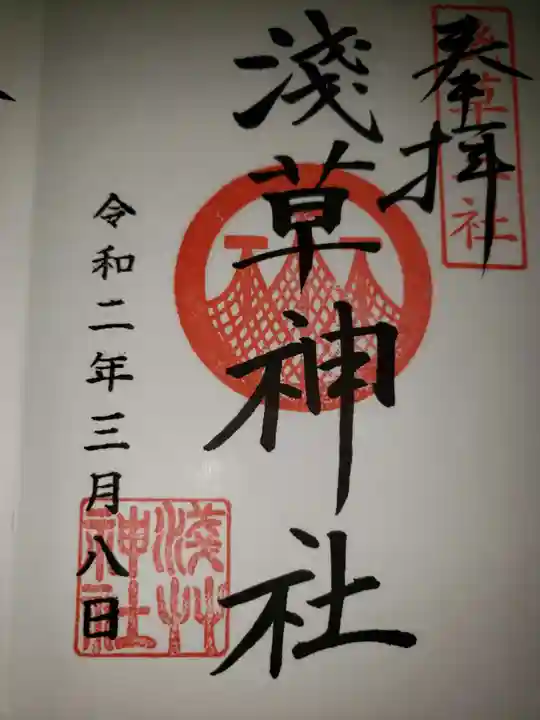 奉拝
淺草神社
令和二年三月八日
淺草
神社